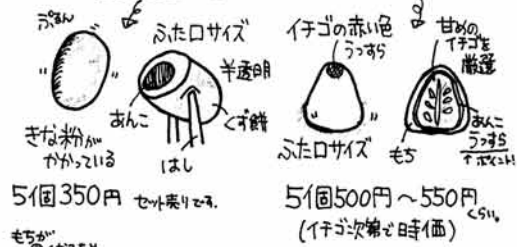 ぷるん
ふた口サイズ
半透明
あんこ
くず餅
きな粉が
かかっている
はし
5個350円 セット売りです。
イチゴの赤い色
うっすら
甘めの
イチゴを
厳選
ふた口サイズ
もち
あんこ
うっすら
↑ポイント!
5個500円～550円
くらい。
(イチゴ次第で時価)
もちが